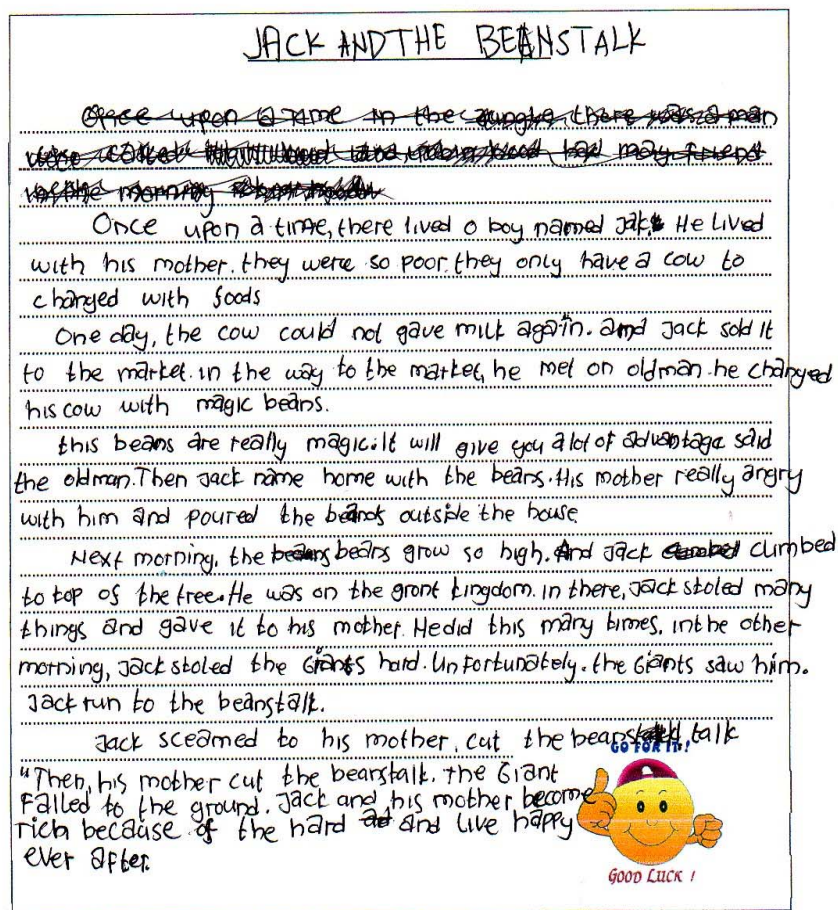 JACK AND THE BEANSTALK
Once upon a time in the jungle, there was a man
Once upon a time, there lived a boy named Jak. He lived
with his mother. they were so poor. they only have a cow to
changed with foods
One day, the cow could not gave milk again. and Jack sold it
to the market. in the way to the market, he met on oldman. he changed
his cow with magic beans.
this beans are really magic. It will give you a lot of advantage said
the oldman. Then Jack name home with the beans. His mother really angry
with him and poured the beands outside the house
Next morning, the beans grow so high. And Jack climbed
to top of the tree. He was on the giont kingdom. in there, Jack stoled many
things and gave it to his mother. He did this many times. in the other
morning, Jack stoled the Giants hard. Unfortunately. the Giants saw him.
Jack run to the beanstalk.
Jack sceamed to his mother, cut the beanstalk
"Then, his mother cut the beanstalk. The Giant
Falled to the ground. Jack and his mother become
rich because of the hard and live happy
ever after.
GO FOR IT!
GOOD LUCK !